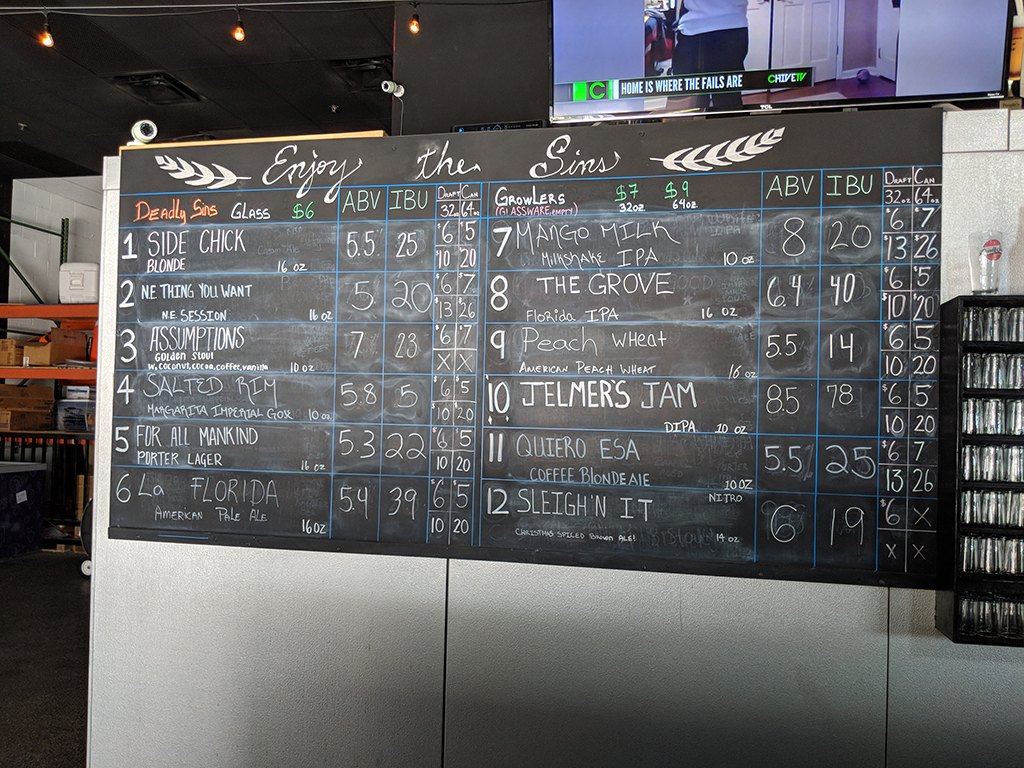 HOME IS WHERE THE FAILS ARE
CHIVETV
TCL
Enjoy the Sins
Deadly Sins GLASS $6 ABV IBU DRAFT CAN
32oz 64oz
1 SIDE CHICK 5.5 25 $6 $5
BLONDE 16 oz 10 20
2 N.E THING YOU WANT 5 20 $6 $7
N.E. SESSION 16 oz $13 $26
3 ASSUMPTIONS 7 23 $6 $7
Golden stout X X
w, coconut, cocoa, coffee, vanilla 10 oz
4 SALTED RIM 5.8 5 $6 $5
MARGARITA IMPERIAL GOSE 10 oz $10 $20
5 FOR ALL MANKIND 5.3 22 $6 $5
PORTER LAGER 16 oz 10 20
6 La FLORIDA 5.4 39 $6 $5
AMERICAN PALE ALE 16 oz 10 20
GROWLERS $7 $9 ABV IBU DRAFT CAN
(GLASSWARE, EMPTY) 32oz 64oz 32oz 64oz
7 MANGO MILK 8 20 $6 $7
MILKSHAKE IPA 10 oz $13 $26
8 THE GROVE 6.4 40 $6 $5
Florida IPA 16 oz $10 $20
9 Peach WHEAT 5.5 14 $6 $5
AMERICAN PEACH WHEAT 16 oz 10 20
10 JELMER'S JAM 8.5 78 $6 $5
DIPA 10 oz 10 20
11 QUIERO ESA 5.5 25 $6 $7
COFFEE BLONDE ALE 10 oz 13 26
12 SLEIGH'N IT NITRO 6 19 $6 X
CHRISTMAS SPICED BROWN ALE! 14 oz X X